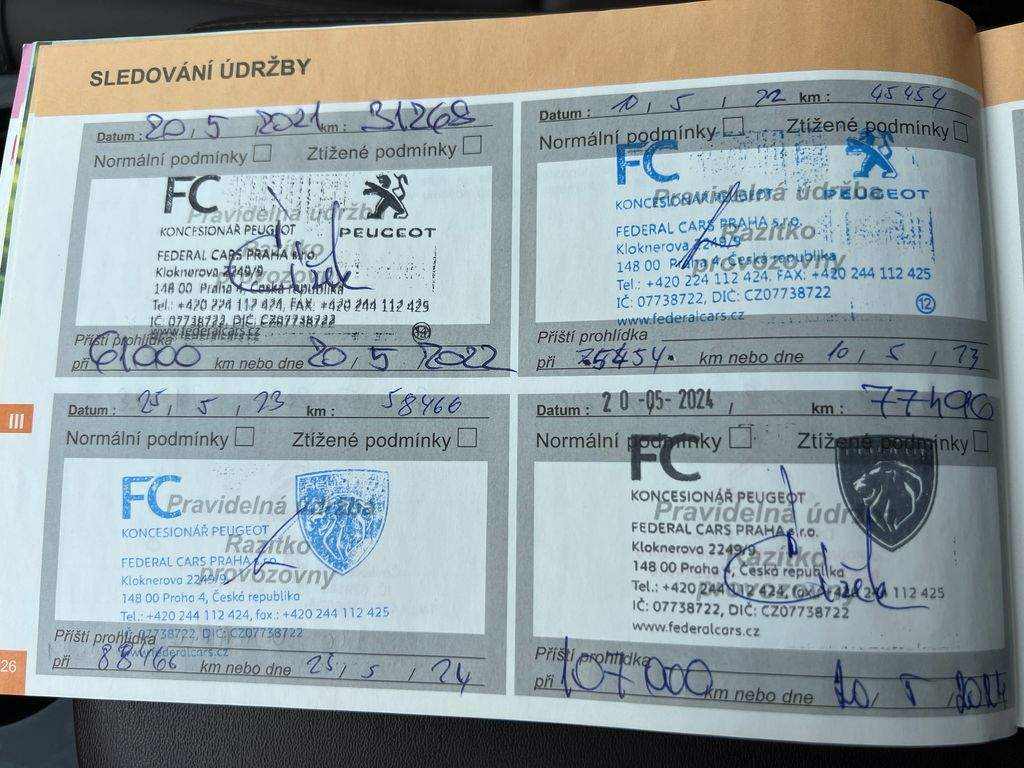 SLEDOVÁNÍ ÚDRŽBY
Datum : 20 , 5 , 2021 km : 31268
Normální podmínky Ztížené podmínky
FC
Pravidelná údržba
KONCESIONÁŘ PEUGEOT
PEUGEOT
Razítko
FEDERAL CARS PRAHA s.r.o.
Kloknerova 2249/9
provozovny
148 00 Praha 4, Česká republika
Tel.: +420 224 112 424, FAX: +420 244 112 425
IČ: 07738722, DIČ: CZ07738722
www.federalcars.cz
Příští prohlídka
při 61000 km nebo dne 20 , 5 , 2022
Datum : 10 , 5 , 22 km : 45454
Normální podmínky Ztížené podmínky
FC
Pravidelná údržba
KONCESIONÁŘ PEUGEOT
PEUGEOT
FEDERAL CARS PRAHA s.r.o.
Razítko
Kloknerova 2249/9
148 00 Praha 4, Česká republika
provozovny
Tel.: +420 244 112 424, FAX: +420 244 112 425
IČ: 07738722, DIČ: CZ07738722
12
www.federalcars.cz
Příští prohlídka
při 75454 km nebo dne 10 , 5 , 23
III
Datum : 25 , 5 , 23 km : 58466
Normální podmínky Ztížené podmínky
FC
Pravidelná údržba
KONCESIONÁŘ PEUGEOT
Razítko
FEDERAL CARS PRAHA s.r.o.
Kloknerova 2249/9
provozovny
148 00 Praha 4, Česká republika
Tel.: +420 244 112 424, fax.: +420 244 112 425
IČ: 07738722, DIČ: CZ07738722
www.federalcars.cz
Příští prohlídka
při 88466 km nebo dne 25 , 5 , 24
Datum : 20 -05- 2024 / km : 77496
Normální podmínky Ztížené podmínky
FC
KONCESIONÁŘ PEUGEOT
Pravidelná údržba
FEDERAL CARS PRAHA s.r.o.
Kloknerova 2249/9
Razítko
148 00 Praha 4, Česká republika
provozovny
Tel.: +420 244 112 424, fax.: +420 244 112 425
IČ: 07738722, DIČ: CZ07738722
www.federalcars.cz
Příští prohlídka
při 107000 km nebo dne 20 , 5 ,
26